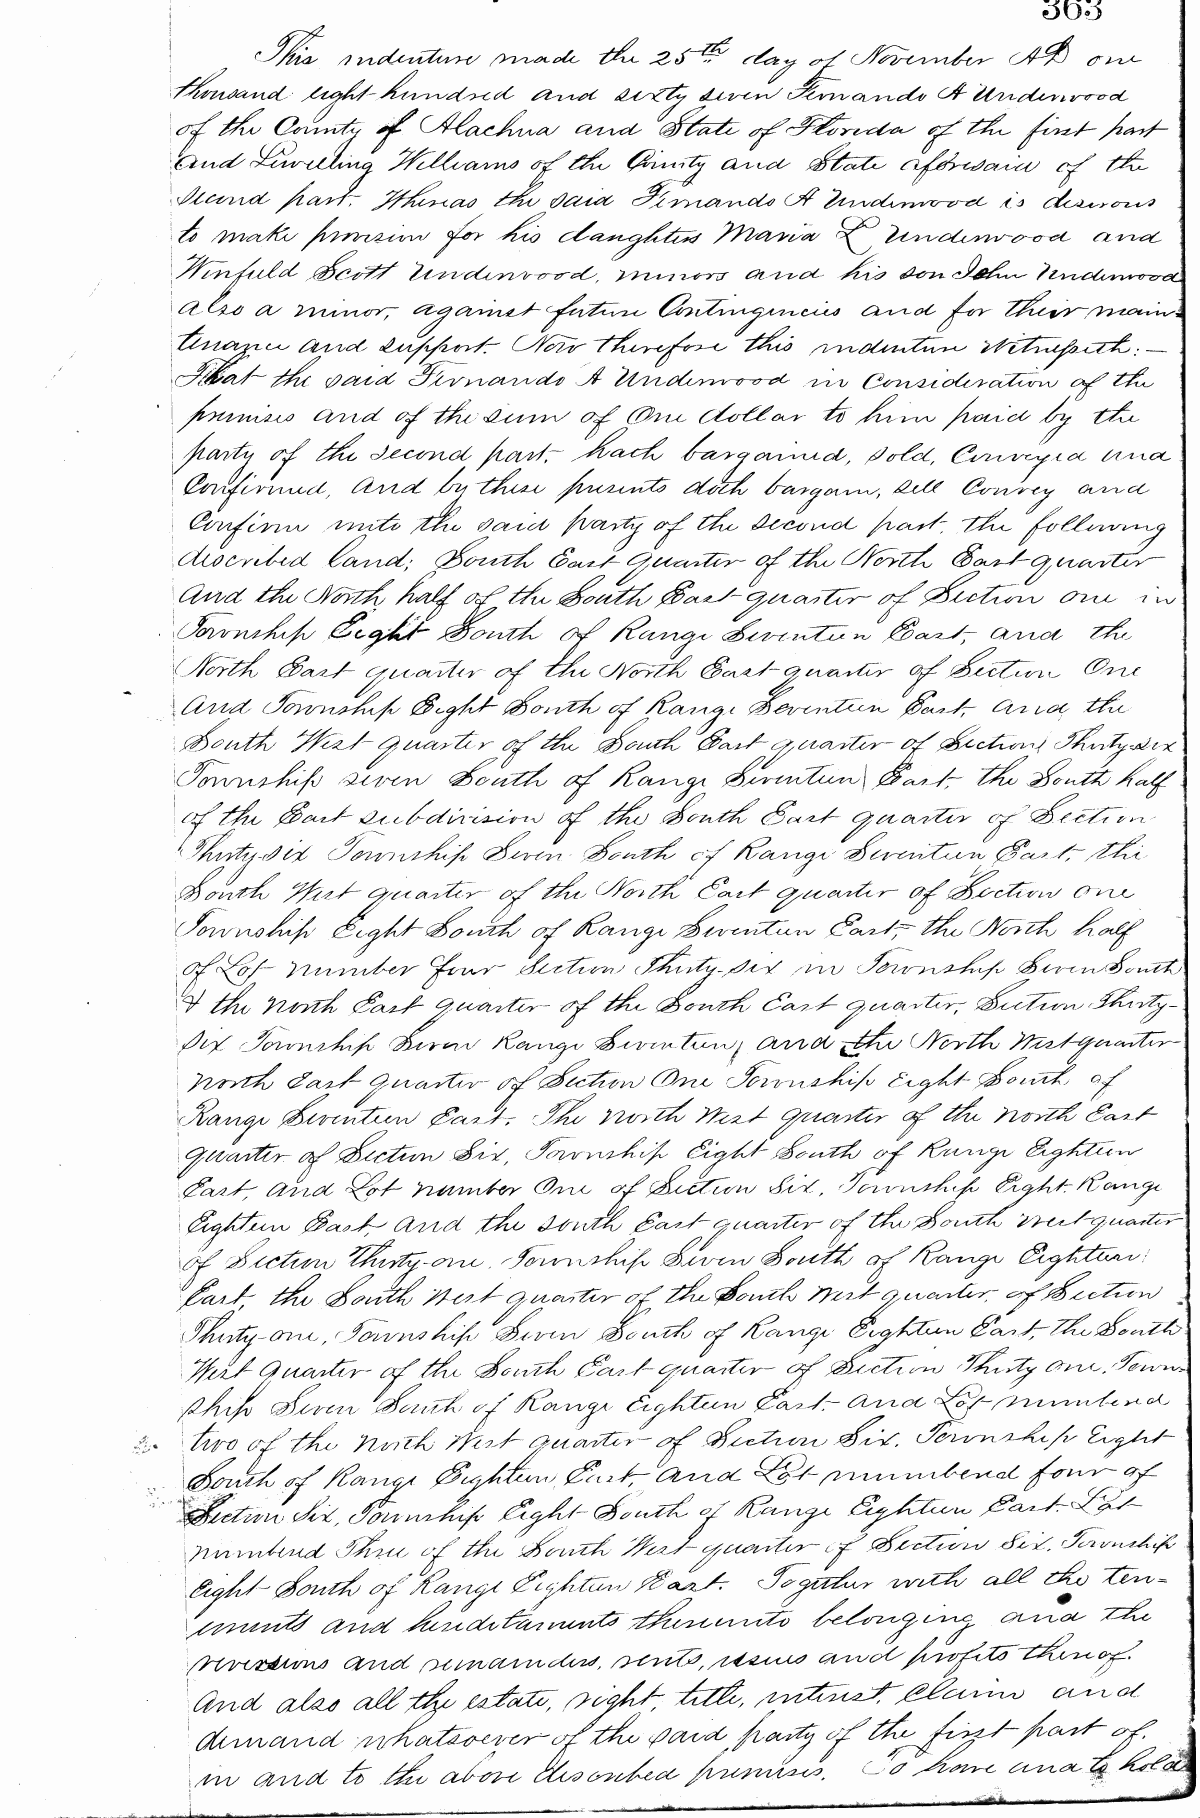 363
This indenture made the 25th day of November AD one
thousand eight hundred and sixty seven Fernando A Underwood
of the County of Alachua and State of Florida of the first part
and Lewelling Williams of the County and State aforesaid of the
second part. Whereas the said Fernando A Underwood is desirous
to make provision for his daughters Maria L Underwood and
Winfield Scott Underwood, minors and his son John Underwood
also a minor, against future Contingencies and for their main-
tenance and support. Now therefore this indenture Witnesseth:—
That the said Fernando A Underwood in Consideration of the
premises and of the sum of One dollar to him paid by the
party of the second part, hach bargained, sold, Conveyed and
Confirmed, and by these presents doth bargain, sell Convey and
Confirm unto the said party of the second part, the following
described land; South East quarter of the North East quarter
and the North half of the South East quarter of Section one in
Township Eight South of Range Seventeen East, and the
North East quarter of the North East quarter of Section One
and Township Eight South of Range Seventeen East, and the
South West quarter of the South East quarter of Section Thirty-six
Township seven South of Range Seventeen East, the South half
of the East subdivision of the South East quarter of Section
Thirty-six Township Seven South of Range Seventeen East, the
South West quarter of the North East quarter of Section one
Township Eight South of Range Seventeen East, the North half
of Lot number four Section Thirty-six in Township Seven South
& the North East quarter of the South East quarter, Section Thirty-
six Township Seven Range Seventeen, and the North West quarter
North East quarter of Section One Township Eight South of
Range Seventeen East. The North West quarter of the North East
quarter of Section Six, Township Eight South of Range Eighteen
East, and Lot number One of Section Six, Township Eight. Range
Eighteen East, and the South East quarter of the South West quarter
of Section Thirty-one. Township Seven South of Range Eighteen
East, the South West quarter of the South West quarter, of Section
Thirty-one, Township Seven South of Range Eighteen East, the South
West Quarter of the South East quarter of Section Thirty one, Town-
ship Seven South of Range Eighteen East, and Lot numbered
two of the North West quarter of Section Six, Township Eight
South of Range Eighteen East, and Lot numbered four of
Section Six, Township Eight South of Range Eighteen East. Lot
numbered Three of the South West quarter of Section Six, Township
Eight South of Range Eighteen East. Together with all the ten-
ements and hereditaments thereunto belonging and the
reversions and remainders, rents, issues and profits thereof.
And also all the estate, right, title, interest, Claim and
demand whatsoever of the said party of the first part of,
in and to the above described premises. To have and to hold